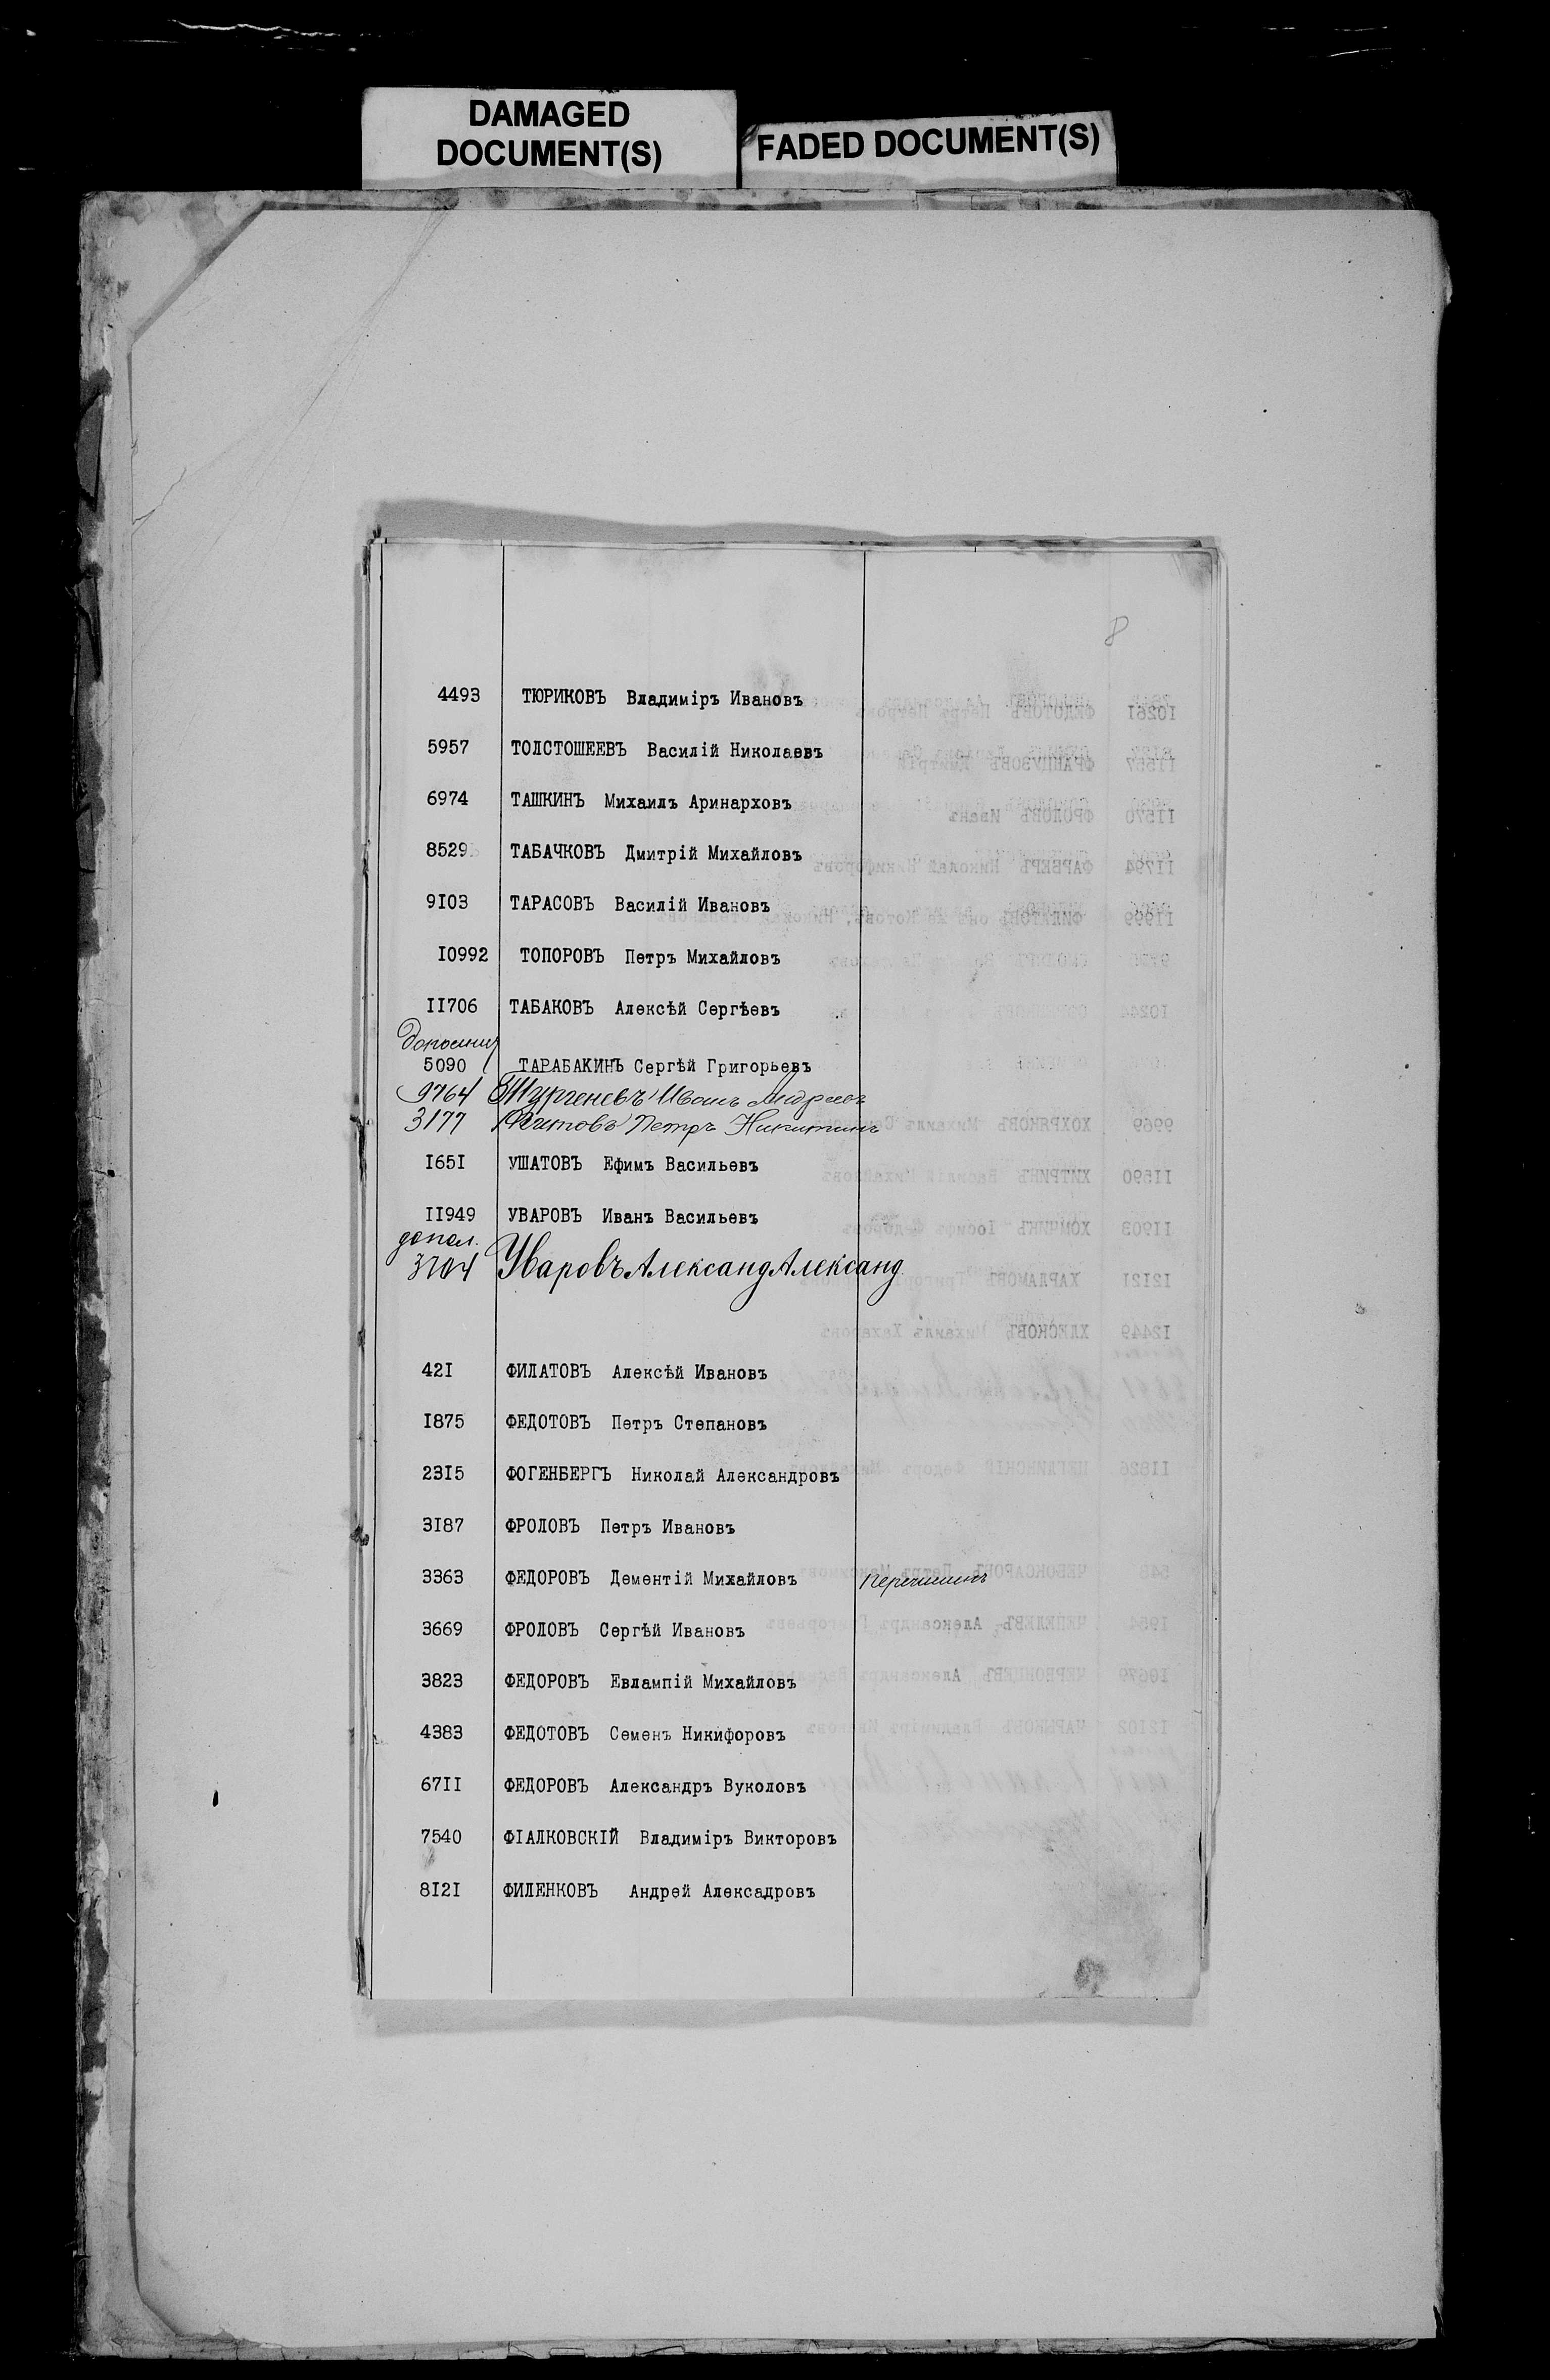 DAMAGED
DOCUMENT(S)
FADED DOCUMENT(S)
8
4493 ТЮРИКОВЪ Владиміръ Ивановъ
5957 ТОЛСТОШЕЕВЪ Василій Николаевъ
6974 ТАШКИНЪ Михаилъ Аринарховъ
8529 ТАБАЧКОВЪ Дмитрій Михайловъ
9I03 ТАРАСОВЪ Василій Ивановъ
I0992 ТОПОРОВЪ Петръ Михайловъ
II706 ТАБАКОВЪ Алексѣй Сергѣевъ
5090 ТАРАБАКИНЪ Сергѣй Григорьевъ
9764 Тургеневъ Иванъ Андреевъ
3177 Петръ Никитинъ
I65I УШАТОВЪ Ефимъ Васильевъ
II949 УВАРОВЪ Иванъ Васильевъ
допол.
3704 Уваровъ Александ Александ
42I ФИЛАТОВЪ Алексѣй Ивановъ
I875 ФЕДОТОВЪ Петръ Степановъ
23I5 ФОГЕНБЕРГЪ Николай Александровъ
3I87 ФРОЛОВЪ Петръ Ивановъ
3363 ФЕДОРОВЪ Дементій Михайловъ
3669 ФРОЛОВЪ Сергѣй Ивановъ
3823 ФЕДОРОВЪ Евлампій Михайловъ
4383 ФЕДОТОВЪ Семенъ Никифоровъ
67II ФЕДОРОВЪ Александръ Вуколовъ
7540 ФІАЛКОВСКІЙ Владиміръ Викторовъ
8I2I ФИЛЕНКОВЪ Андрей Алексадровъ